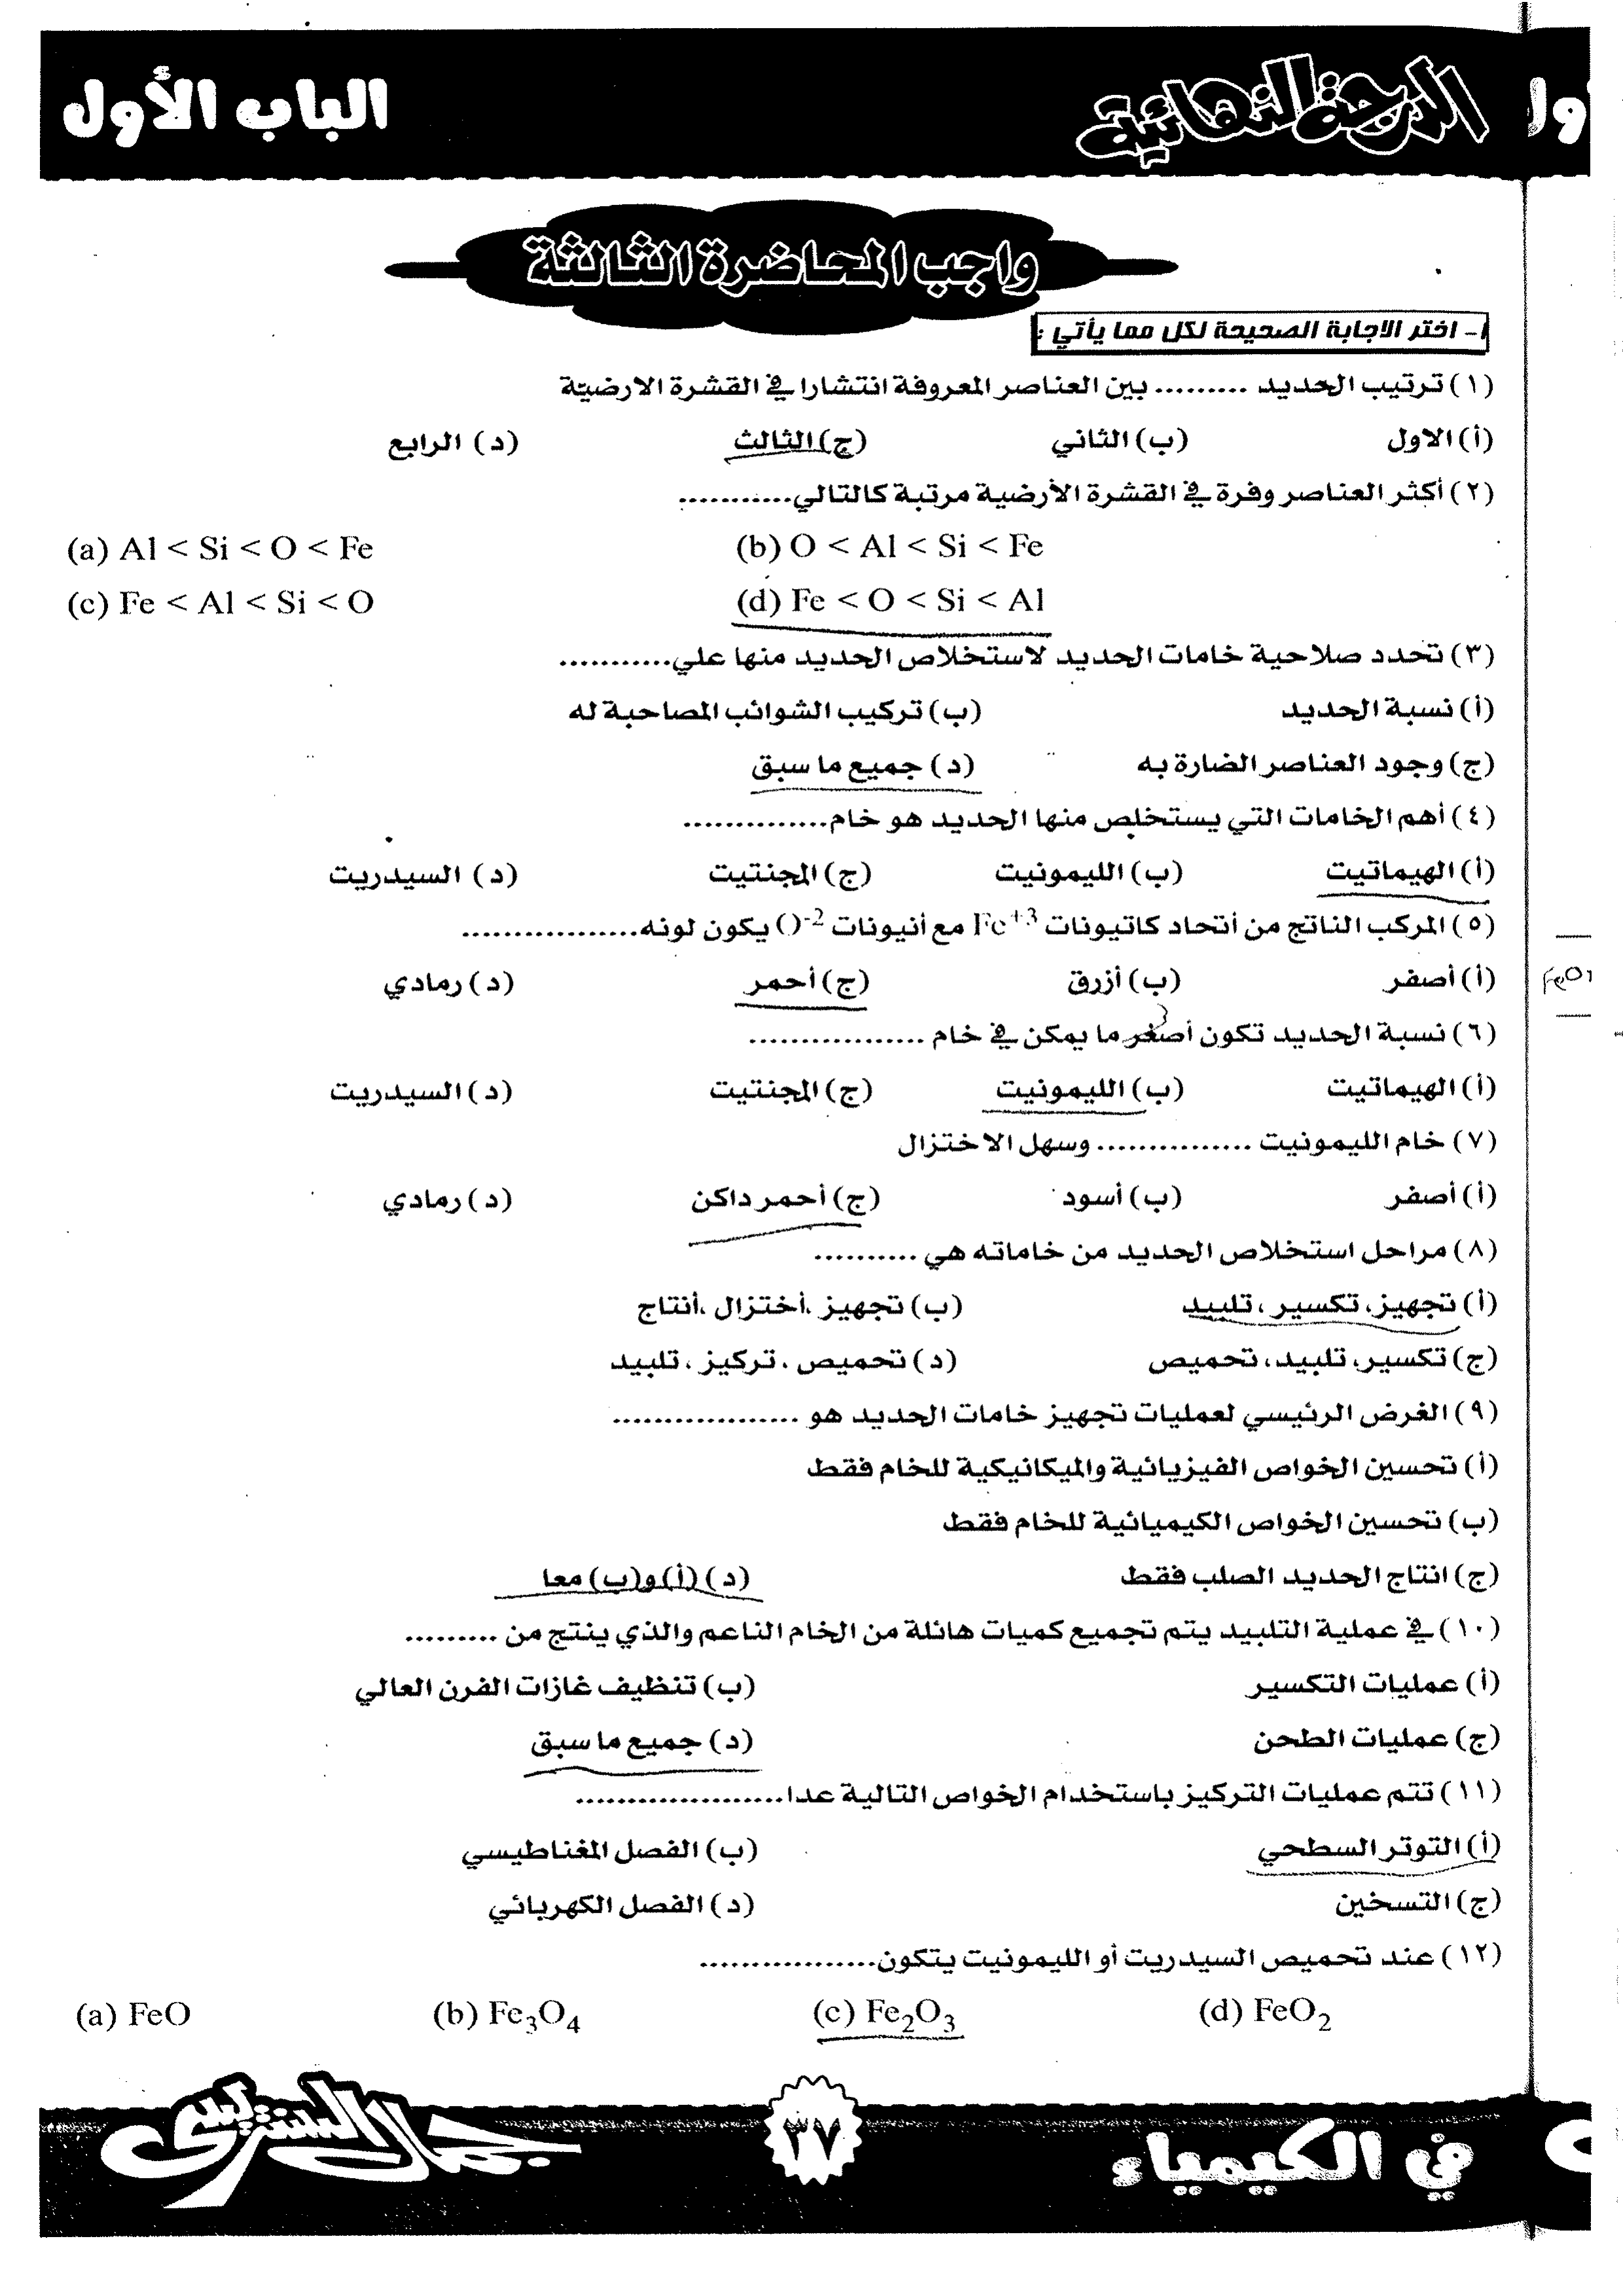 الباب الأول
الدرجة النهائية
ول
واجب المحاضرة الثالثة
١- اختر الاجابة الصحيحة لكل مما يأتي :
(١) ترتيب الحديد ......... بين العناصر المعروفة انتشارا في القشرة الارضية
(أ) الاول (ب) الثاني (ج) الثالث (د) الرابع
(٢) أكثر العناصر وفرة في القشرة الأرضية مرتبة كالتالي...........
(a) Al < Si < O < Fe (b) O < Al < Si < Fe
(c) Fe < Al < Si < O (d) Fe < O < Si < Al
(٣) تحدد صلاحية خامات الحديد لاستخلاص الحديد منها علي...........
(أ) نسبة الحديد (ب) تركيب الشوائب المصاحبة له
(ج) وجود العناصر الضارة به (د) جميع ما سبق
(٤) أهم الخامات التي يستخلص منها الحديد هو خام..............
(أ) الهيماتيت (ب) الليمونيت (ج) المجنتيت (د) السيدريت
(٥) المركب الناتج من أتحاد كاتيونات Fe⁺³ مع أنيونات O⁻² يكون لونه.................
(أ) أصفر (ب) أزرق (ج) أحمر (د) رمادي
(٦) نسبة الحديد تكون أصغر ما يمكن في خام .................
(أ) الهيماتيت (ب) الليمونيت (ج) المجنتيت (د) السيدريت
(٧) خام الليمونيت ............... وسهل الاختزال
(أ) أصفر (ب) أسود (ج) أحمر داكن (د) رمادي
(٨) مراحل استخلاص الحديد من خاماته هي ..........
(أ) تجهيز، تكسير، تلبيد (ب) تجهيز ،أختزال ،أنتاج
(ج) تكسير، تلبيد، تحميص (د) تحميص ، تركيز ، تلبيد
(٩) الغرض الرئيسي لعمليات تجهيز خامات الحديد هو ..................
(أ) تحسين الخواص الفيزيائية والميكانيكية للخام فقط
(ب) تحسين الخواص الكيميائية للخام فقط
(ج) انتاج الحديد الصلب فقط (د) (أ) و(ب) معا
(١٠) في عملية التلبيد يتم تجميع كميات هائلة من الخام الناعم والذي ينتج من .........
(أ) عمليات التكسير (ب) تنظيف غازات الفرن العالي
(ج) عمليات الطحن (د) جميع ما سبق
(١١) تتم عمليات التركيز باستخدام الخواص التالية عدا....................
(أ) التوتر السطحي (ب) الفصل المغناطيسي
(ج) التسخين (د) الفصل الكهربائي
(١٢) عند تحميص السيدريت أو الليمونيت يتكون.................
(a) FeO (b) Fe₃O₄ (c) Fe₂O₃ (d) FeO₂
جمال السنتريسي
٣٧
في الكيمياء